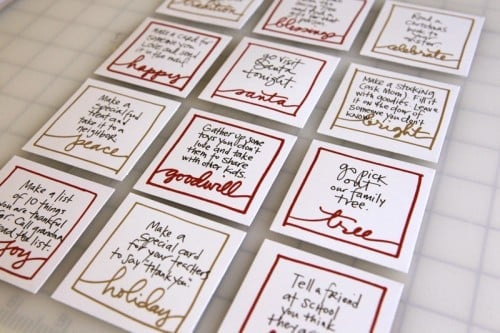 tradition
blessings
Read a
Christmas
book to
sister
celebrate
Make a card for
someone you
love and send
it in the mail!
happy
go visit
Santa
tonight.
santa
Make a stocking
(ask Mom). Fill it
with goodies. Leave
it on the door of
someone you don't
know.
bright
Make a
special
treat and
take it to a
neighbor.
peace
Gather up some
toys you don't
use and take
them to share
with other kids.
goodwill
go pick
out
our family
tree.
tree
Make a list
of 10 things
you are thankful
for. Call grandma
read the list.
joy
Make a
special card
for your teachers
to say thank you.
holiday
Tell a friend
at school
you think